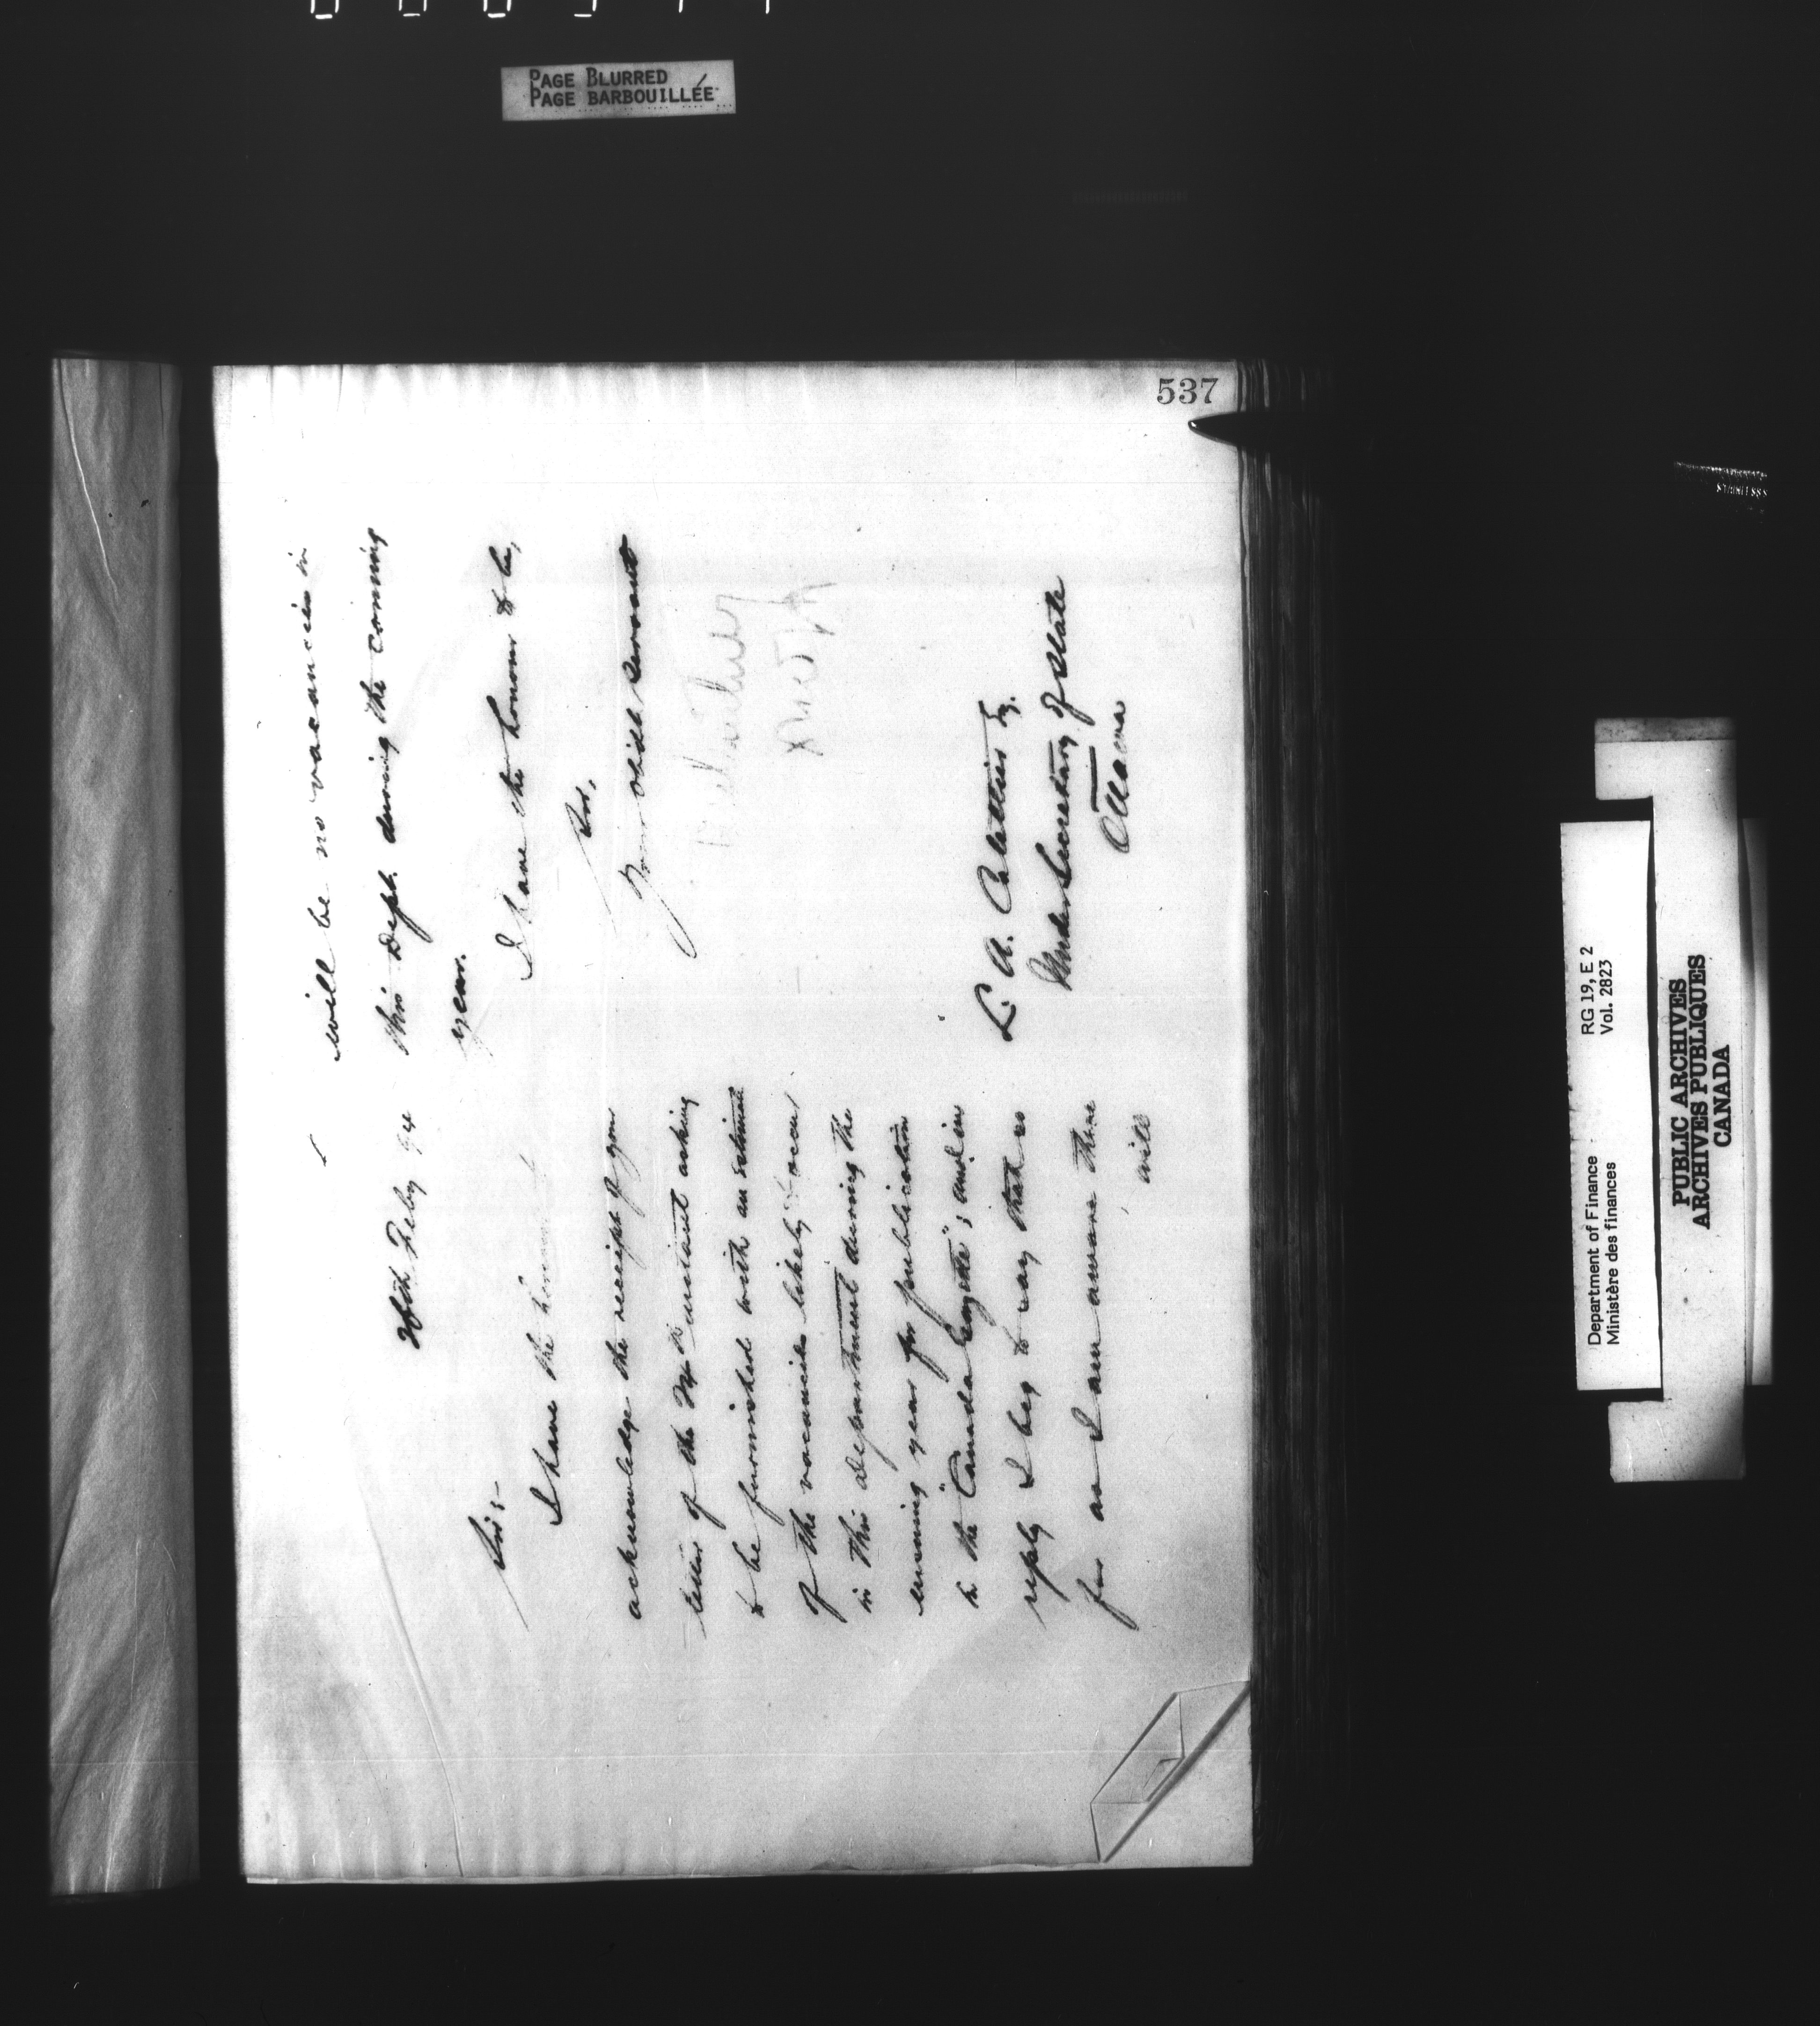 PAGE BLURRED
PAGE BARBOUILLÉE
537
26th Feby 94
Sir:-
I have the honour to
acknowledge the receipt of your
letter of the instant asking
to be furnished with an estimate
of the vacancies likely to occur
in this department during the
ensuing year for publication
in the "Canada Gazette"; and in
reply I beg to say that so
far as I am aware there
will
will be no vacancies in
this Dept. during the coming
year.
I have the honour to be,
Sir,
Your obdt. servant
L. A. Catellier Esq.
Under Secretary of State
Ottawa
Department of Finance
Ministère des finances
RG 19, E 2
Vol. 2823
PUBLIC ARCHIVES
ARCHIVES PUBLIQUES
CANADA